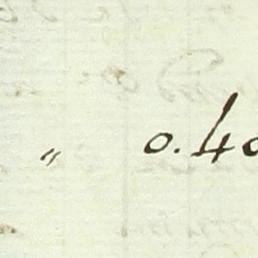 " 0.40